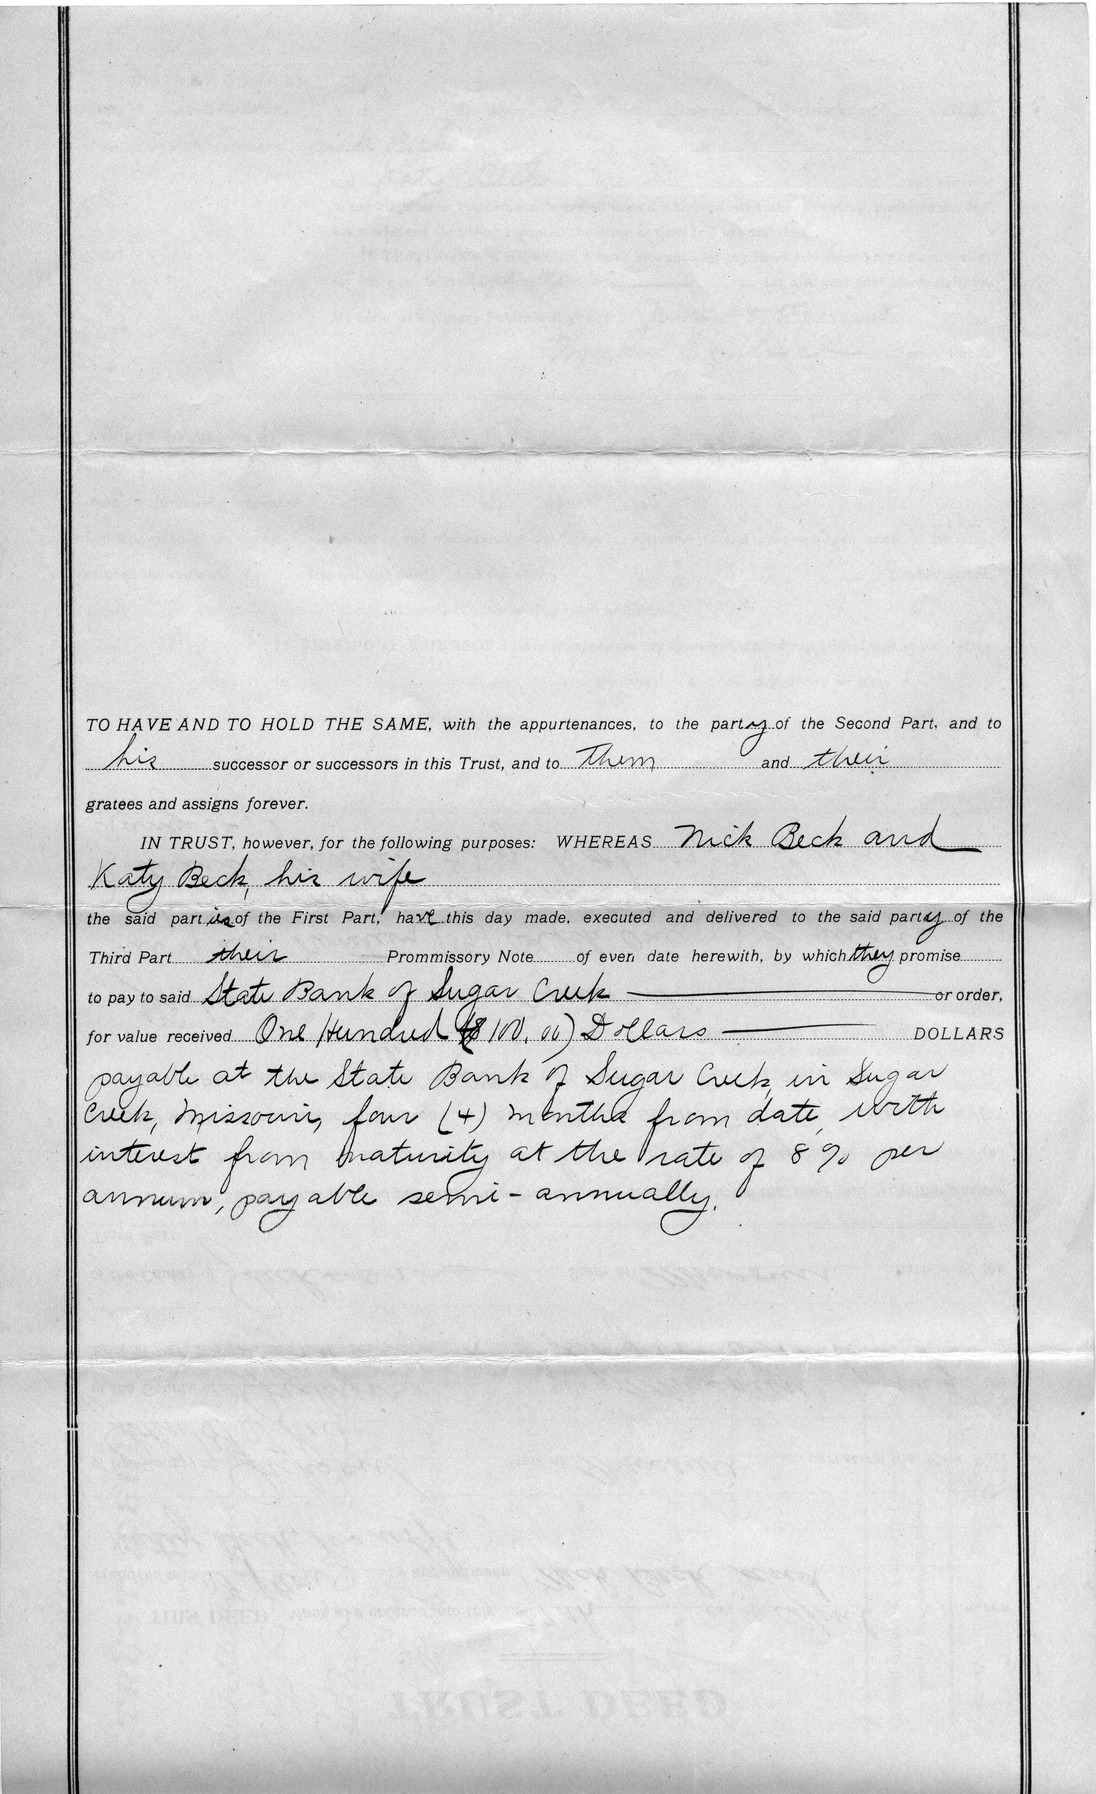 TO HAVE AND TO HOLD THE SAME, with the appurtenances, to the party of the Second Part, and to
his successor or successors in this Trust, and to them and their
gratees and assigns forever.
IN TRUST, however, for the following purposes: WHEREAS Nick Beck and
Katy Beck, his wife
the said parties of the First Part, have this day made, executed and delivered to the said party of the
Third Part their Prommissory Note of even date herewith, by which they promise
to pay to said State Bank of Sugar Creek or order,
for value received One Hundred ($100.00) Dollars DOLLARS
payable at the State Bank of Sugar Creek, in Sugar
Creek, Missouri, four (4) months from date, with
interest from maturity at the rate of 8% per
annum, payable semi-annually.
TRUST DEED